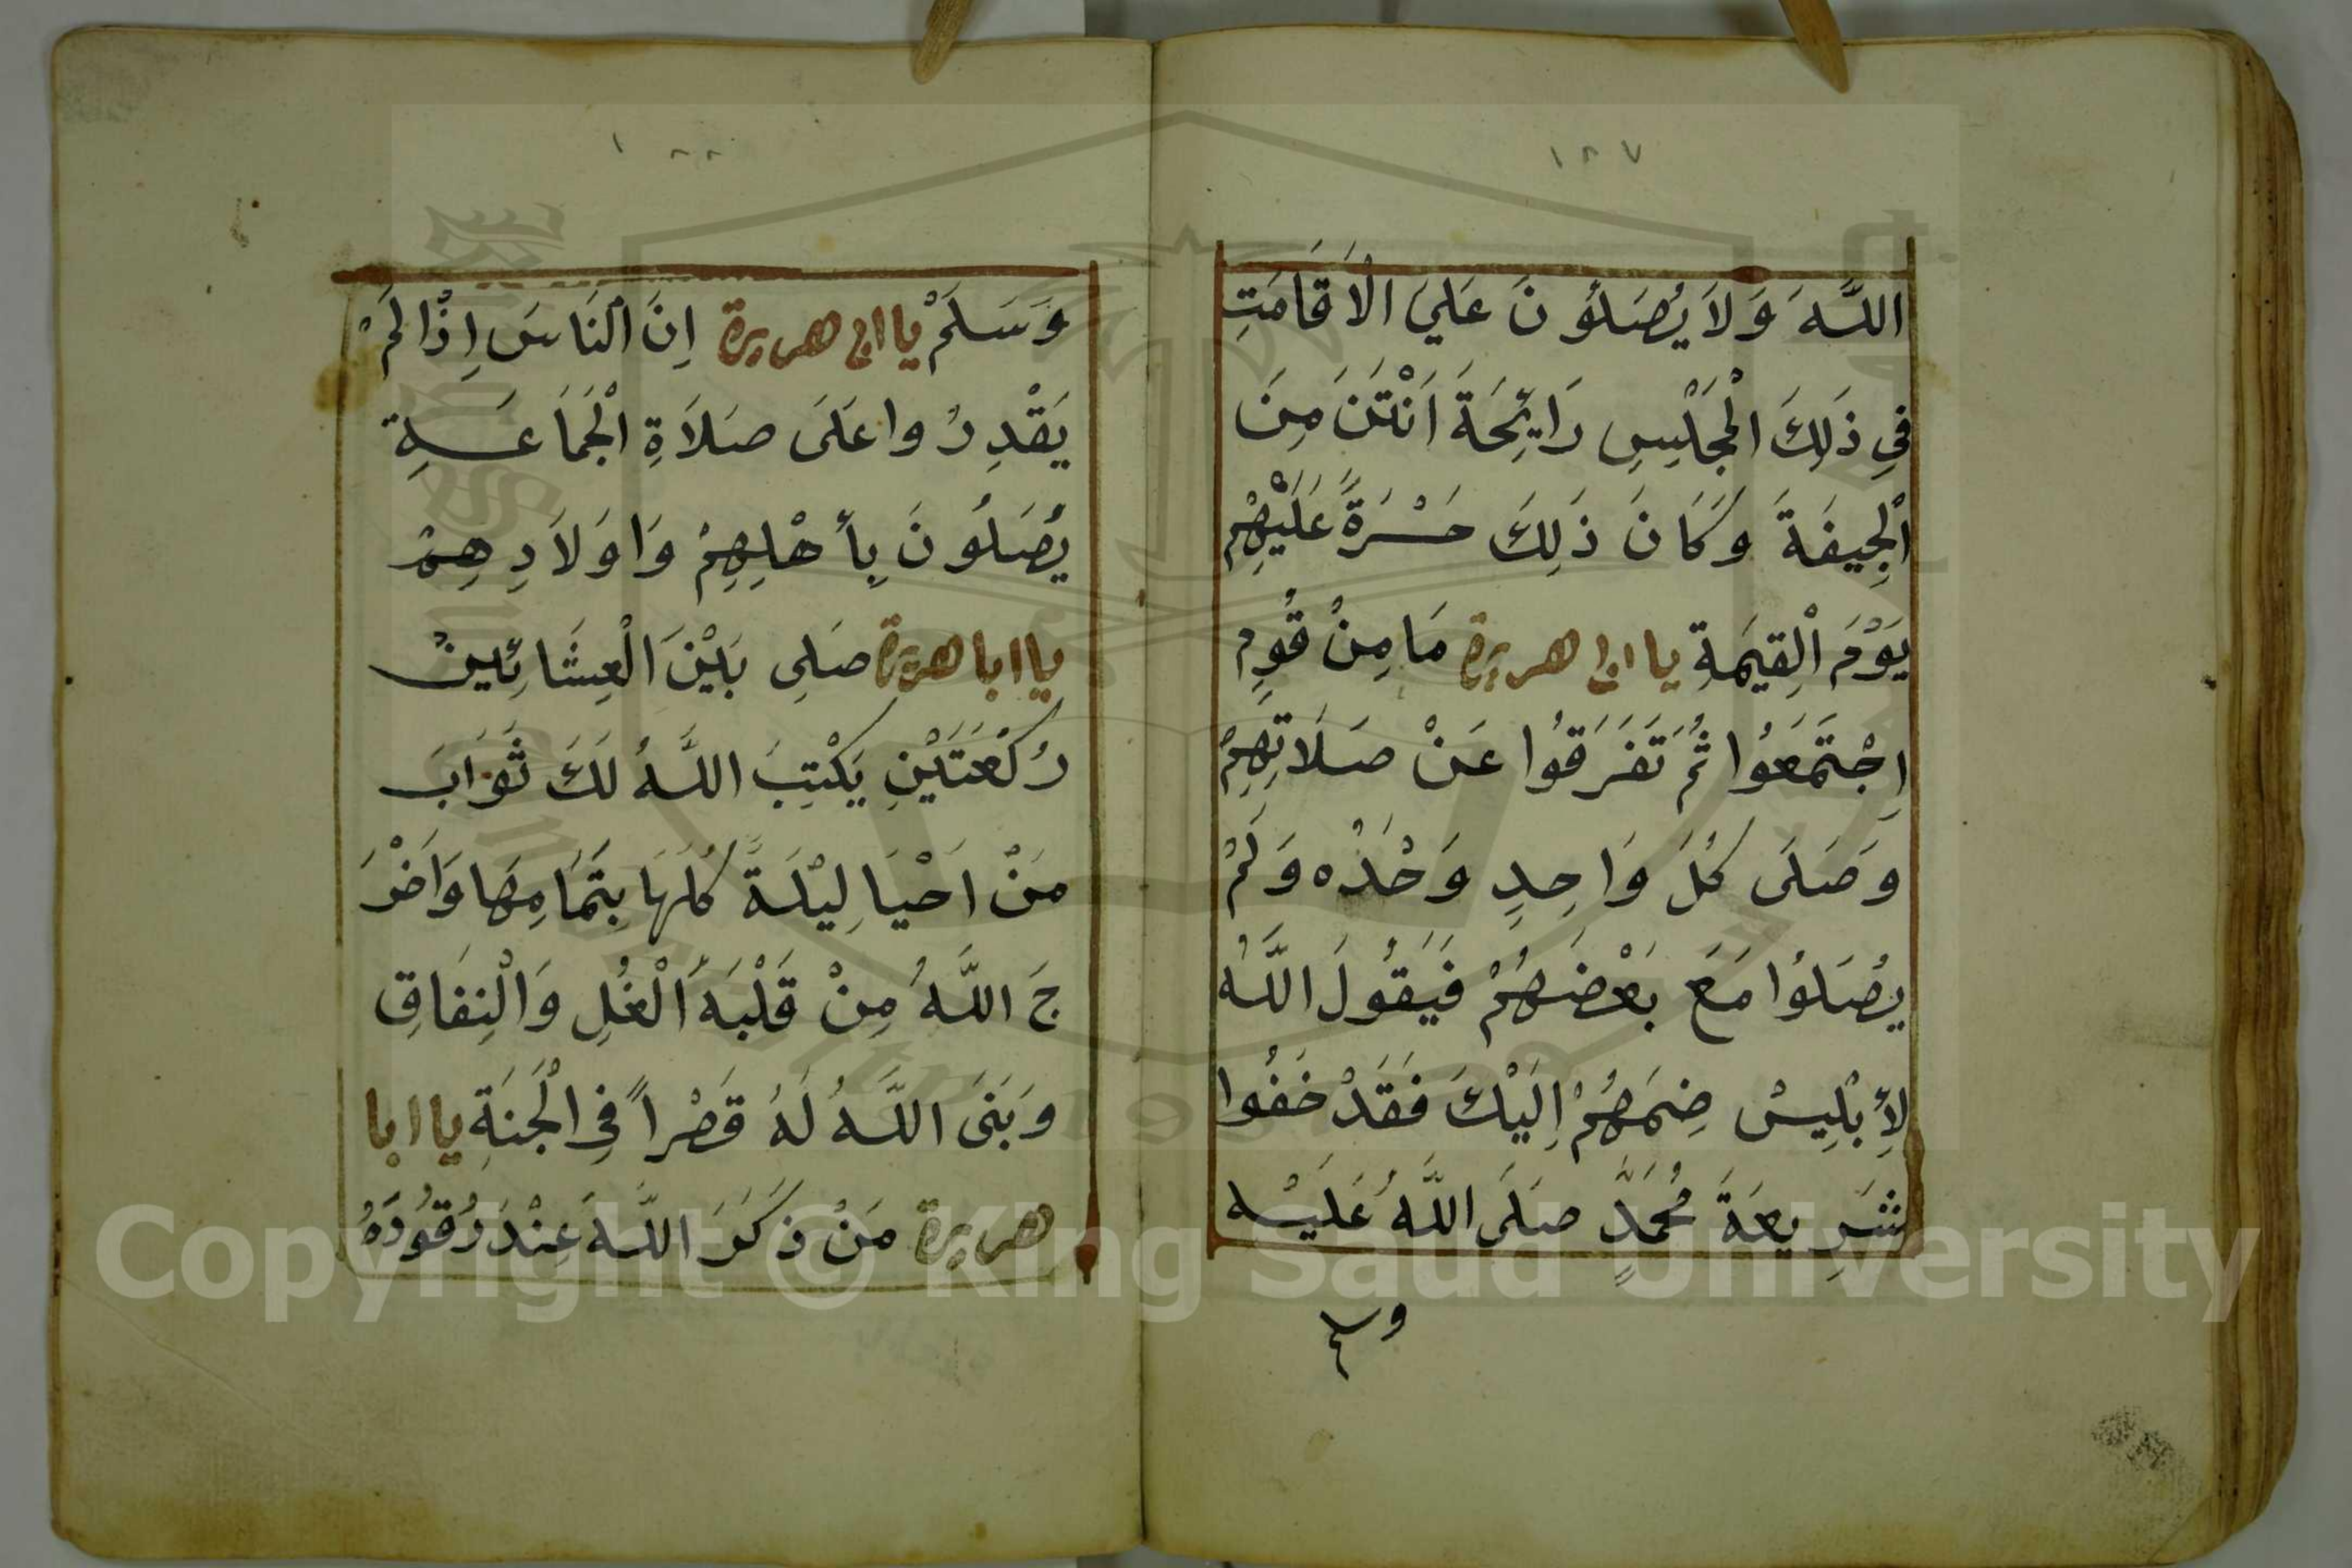 ١٢٧
اللَّهَ وَلاَ يُصَلُّونَ عَلَيَ الْاَقَامَتِ
فِي ذَلِكَ الْمَجْلِسِ رَايِحَةَ اَنْتَنَ مِنَ
الْجِيفَةَ وَكَانَ ذَلِكَ حَسْرَةً عَلَيْهِمْ
يَوْمَ الْقِيمَةِ يا ابى هريرة مَا مِنْ قَومٍ
اِجْتَمَعُوا ثُمَ تَفَرَقُوا عَنْ صَلَاتِهِمْ
وَصَلَى كُلَ وَاحِدٍ وَحْدَه وَلَمْ
يُصَلُوا مَعَ بَعْضَهُمْ فَيَقُولَ اللَّهُ
لِأبْلِيسْ ضِمَهُمْ اِلَيْكَ فَقَدْ خَفُوا
شَرِيعَةَ مُحَمَدٍ صَلَى اللَّهُ عَلَيْه
وسلم
١٢٢
وَسَلَمْ يا ابى هريرة اِنَ النَاسَ اِذَا لَمْ
يَقْدِرُوا عَلَى صَلَاةِ الْجَمَاعَةِ
يُصَلُونَ بِأهْلِهِمْ وَاوَلَادِهِمْ
يا ابا هريرة صَلِى بَيْنَ الْعِشَائِينْ
رُكْعَتَيْنِ يَكْتِبَ اللَّهُ لَكَ ثَوَابَ
مَنْ اَحْيَا لِيْلَةً كُلَهَا بِتَمَامِهَا وَاَخْرَ
جَ اللَّهُ مِنْ قَلْبَهُ الْغُلِ وَالْنِفَاقِ
وَبَنَى اللَّهُ لَهُ قَصْراً فِى الْجَنَةِ يا ابا
هريرة مَنْ ذكَرَ اللَّهَ عِنْدَ رُقُودَهُ
Copyright © King Saud University